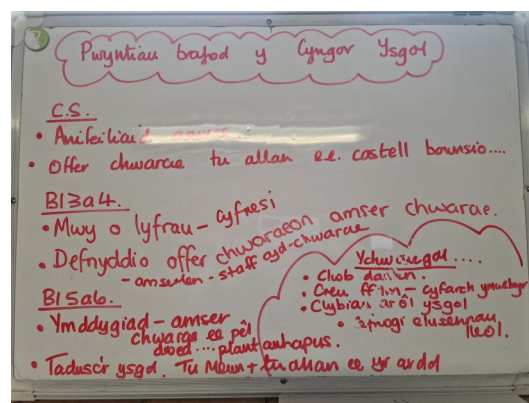 Pwyntiau trafod y Cyngor Ysgol
C.S.
• Anifeiliaid
• Offer chwarae tu allan e.e. castell bownsio....
Bl3a4.
• Mwy o lyfrau - cyfresi
• Defnyddio offer chwaraeon amser chwarae.
- amserlen - staff cyd-chwarae
Bl5a6.
• Ymddygiad - amser
chwarae ee pêl
droed.... plant anhapus.
• Taclusˈr ysgol. Tu Mewn + tu allan ee yr ardd
Ychwanegol ....
• Clwb darllen.
• Creu ffilm - cyfarch ymwelwyr
• Clybiau ar ôl ysgol
• elusennau
lleol.